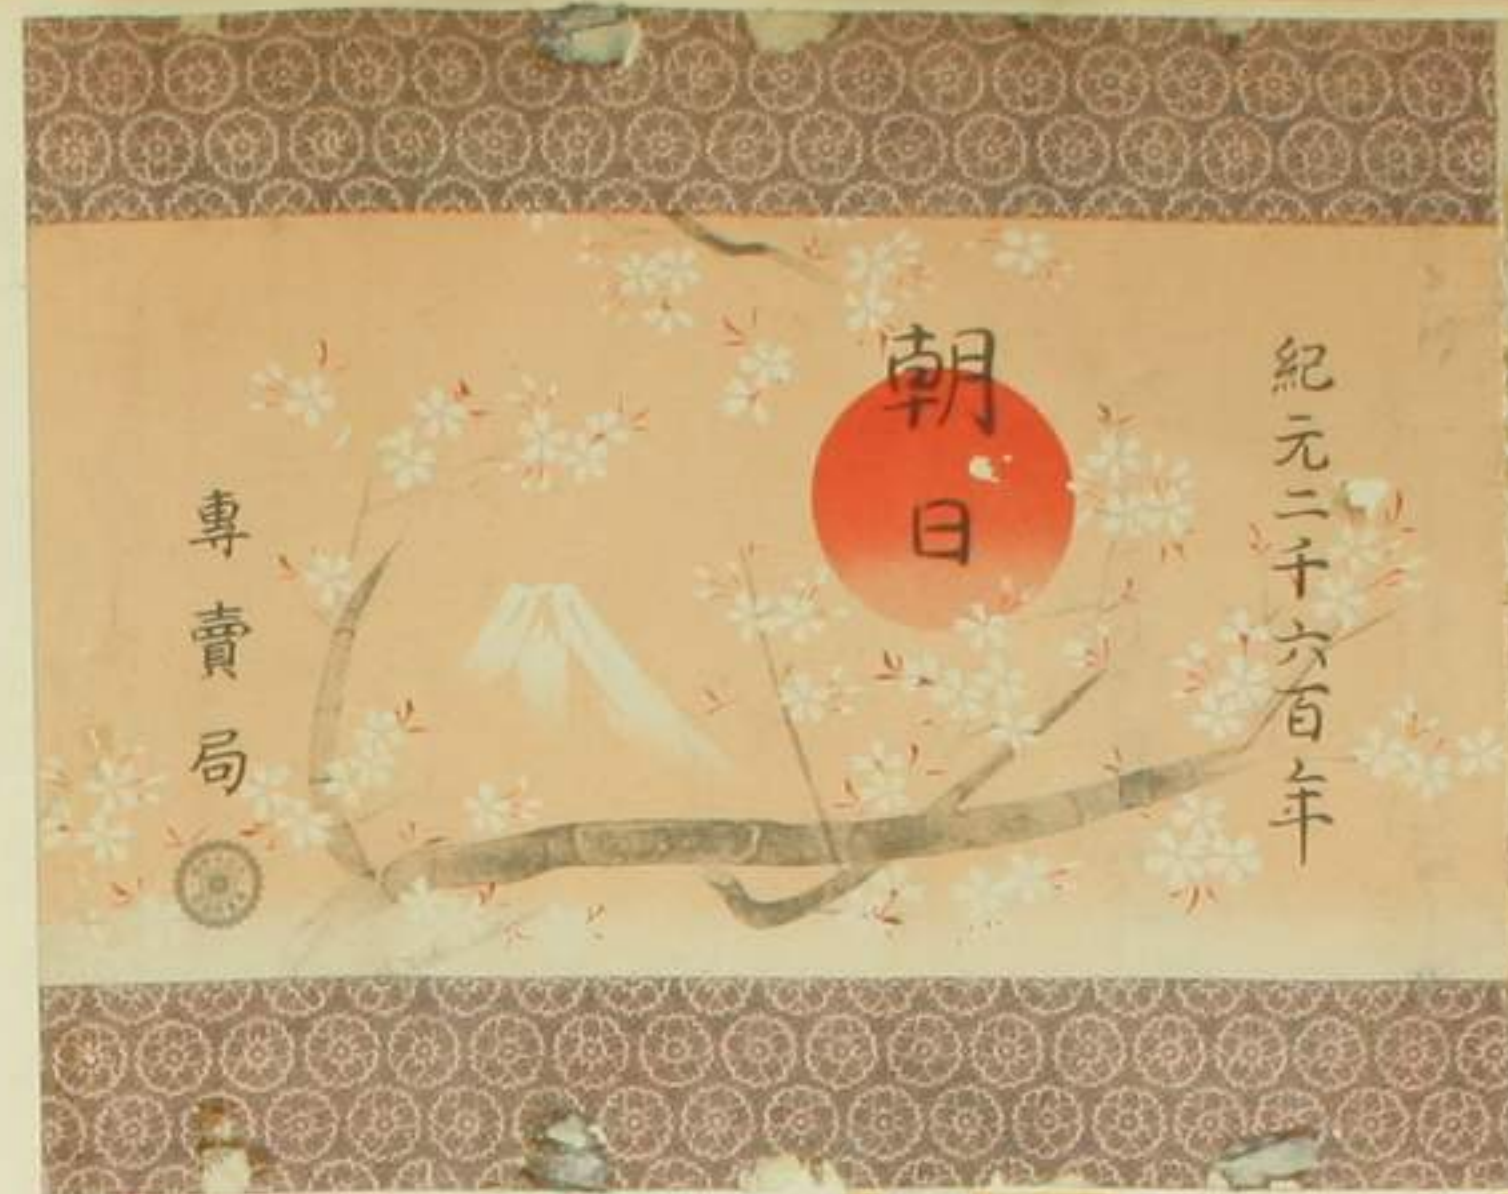 紀元二千六百年
朝日
專賣局